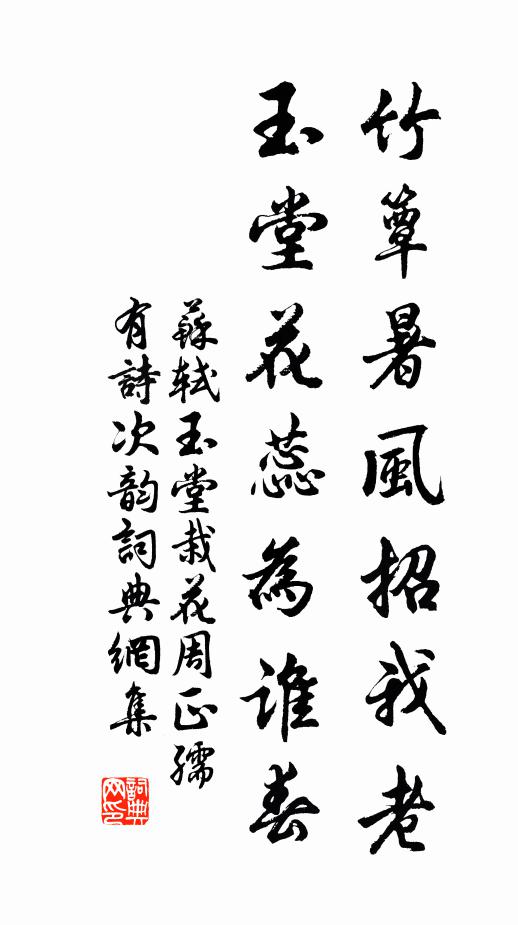 竹簟暑風招我老
玉堂花蕊為誰春
蘇軾玉堂栽花周正孺
有詩次韵詞典網集
詞典
网印